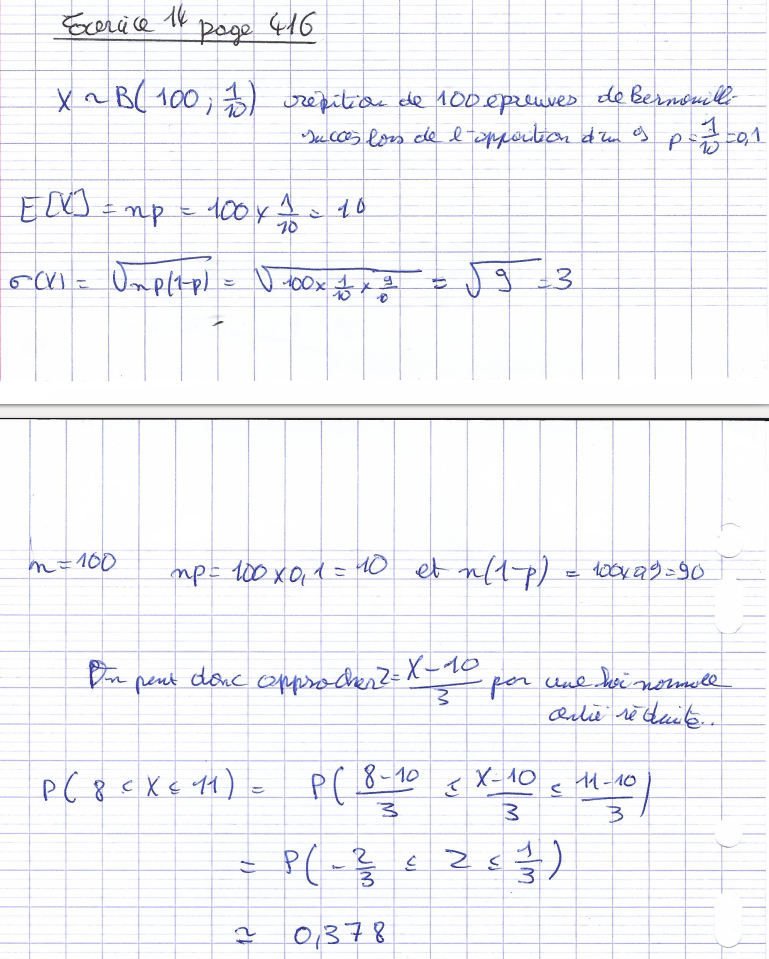 Exercice 14 page 416
X ~ B(100 ; 1/10) répition de 100 épreuves de Bernouilli
succès lors de l'apparition d'un 9 p = 1/10 = 0,1
E[X] = np = 100 × 1/10 = 10
σ(X) = √(np(1-p)) = √(100 × 1/10 × 9/10) = √9 = 3
n = 100 np = 100 × 0,1 = 10 et n(1-p) = 100 × 0,9 = 90
On peut donc approcher Z = (X-10)/3 par une loi normale
centrée réduite..
P( 8 ≤ X ≤ 11) = P( (8-10)/3 ≤ (X-10)/3 ≤ (11-10)/3 )
= P( -2/3 ≤ Z ≤ 1/3 )
≃ 0,378